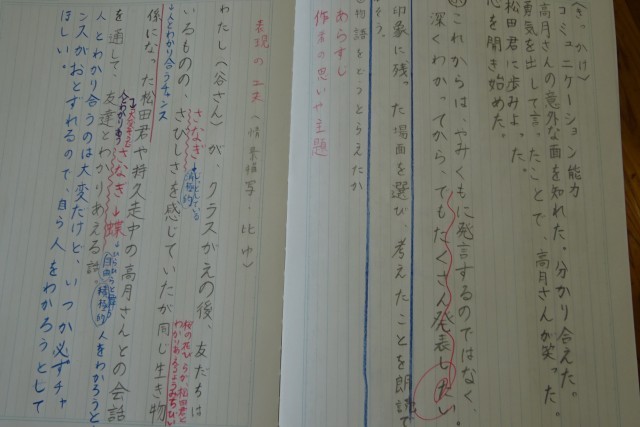 (きっかけ)
コミュニケーション能力
高月さんの意外な面を知れた。分かり合えた。
勇気を出して言ったことで、高月さんが笑った。
松田君に歩みよった。
心を開き始めた。
これからは、やみくもに発言するのではなく、
深くわかってから、でもたくさん発表したい。
印象に残った場面を選び、考えたことを朗読で
そう。
物語をどうとらえたか
あらすじ
作者の思いや主題
表現の工夫(情景描写・比ゆ)
わたし(谷さん)が、クラスがえの後、友だちは
いるものの、さびしさを感じていたが同じ生き物
係になった松田君や持久走中の高月さんとの会話
を通して、友達とわかりあえる話。
人とわかり合うチャンス
さなぎ
さなぎ→蝶
消極的
積極的
人をわかろうと
人とわかり合うのは大変だけど、いつか必ずチャ
ンスがおとずれるので、自ら人をわかろうとして
ほしい。